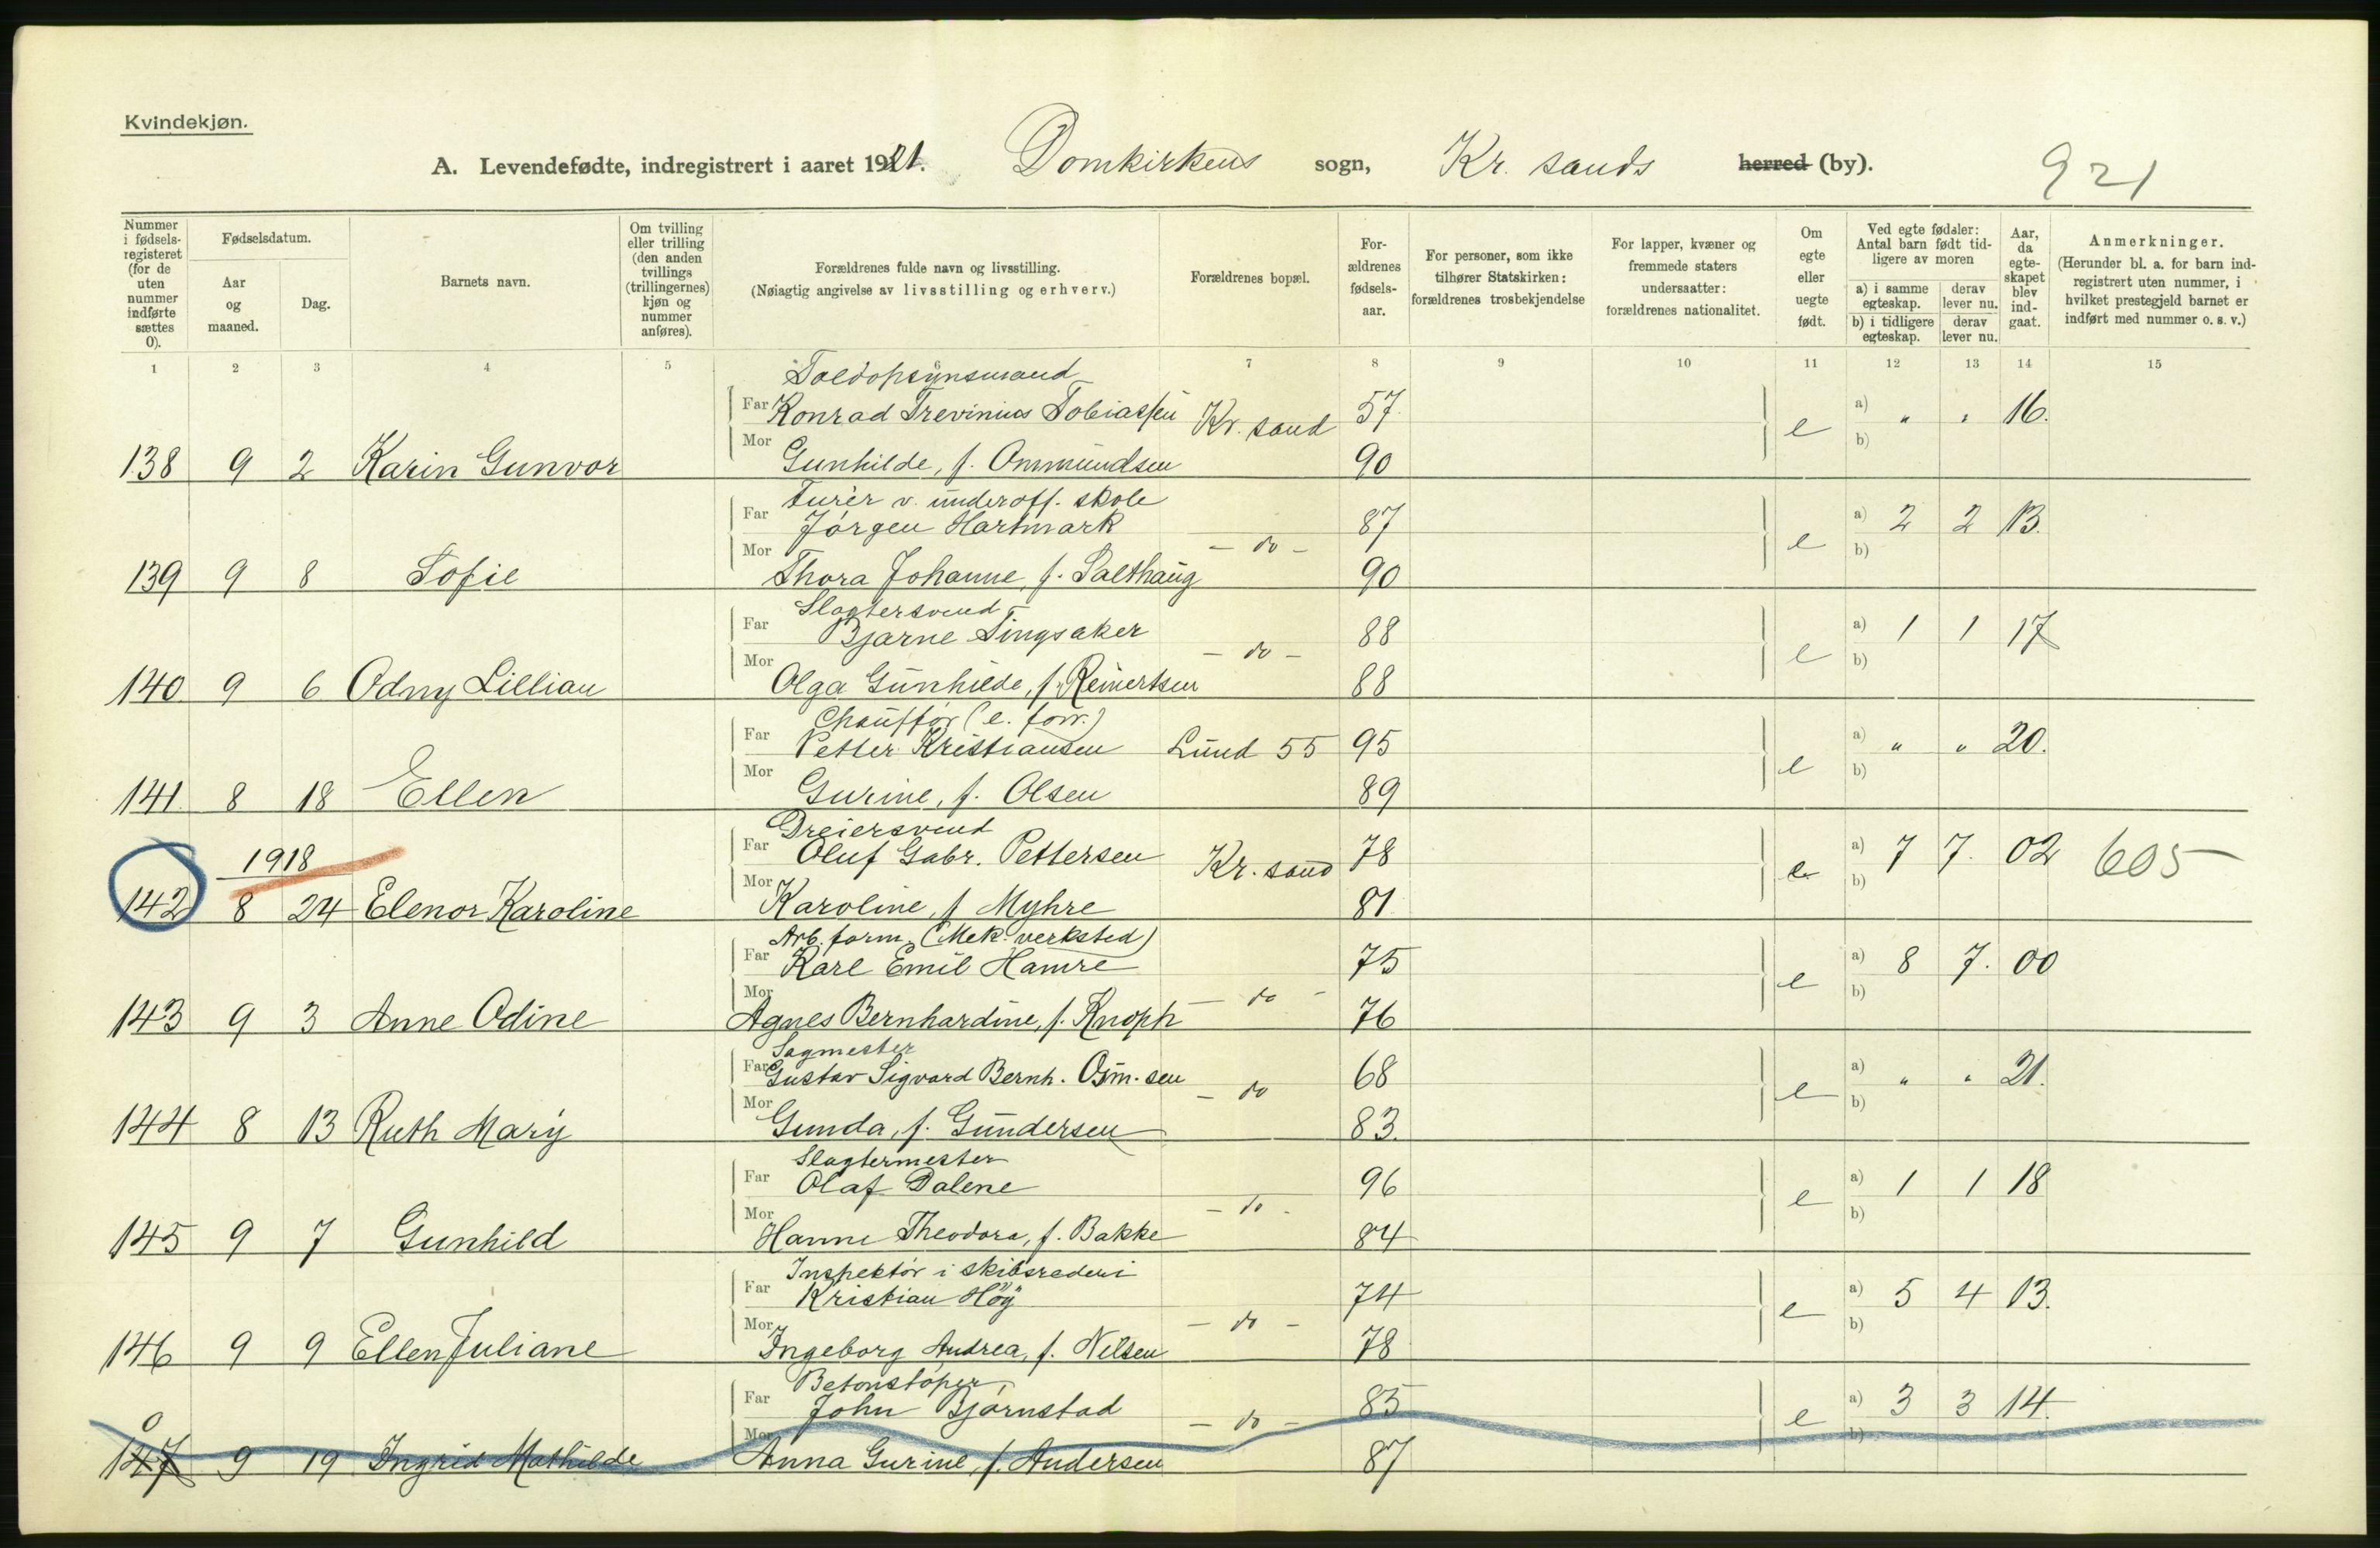 Kvindekjøn.
A. Levendefødte, indregistrert i aaret 1921. Domkirkens sogn, Kr. sands herred (by). 921
Nummer i fødselsregisteret (for de uten nummer indførte sættes 0).
Fødselsdatum.
Aar og maaned.
Dag.
Barnets navn.
Om tvilling eller trilling (den anden tvillings (trillingernes) kjøn og nummer anføres).
Forældrenes fulde navn og livsstilling.
(Nøiagtig angivelse av livsstilling og erhverv.)
Forældrenes bopæl.
Forældrenes fødselsaar.
For personer, som ikke tilhører Statskirken: forældrenes trosbekjendelse
For lapper, kvæner og fremmede staters undersaatter: forældrenes nationalitet.
Om egte eller uegte født.
Ved egte fødsler: Antal barn født tidligere av moren
a) i samme egteskap. derav lever nu.
b) i tidligere egteskap. derav lever nu.
Aar, da egteskapet blev indgaat.
Anmerkninger.
(Herunder bl. a. for barn indregistrert uten nummer, i hvilket prestegjeld barnet er indført med nummer o. s. v.)
1 2 3 4 5 6 7 8 9 10 11 12 13 14 15
Toldopsynsmand
Far Konrad Trevinius Tobiassen Kr. sand 57 e a) " " 16.
Mor b)
138 9 2 Karin Gunvor Gunhilde, f. Ommundsen 90
Furér v. underoff. skole
Far Jørgen Hartmark - do - 87 e a) 2 2 13.
Mor b)
139 9 8 Sofie Thora Johanne, f. Salthaug 90
Slagtersvend
Far Bjarne Tingsaker - do - 88 e a) 1 1 17
Mor b)
140 9 6 Odny Lillian Olga Gunhilde, f. Reinertsen 88
Chauffør (e. forr.)
Far Petter Kristiansen Lund 55 95 e a) " " 20.
Mor b)
141. 8 18 Ellen Gurine, f. Olsen 89
Dreiersvend
1918 Far Oluf Gabr. Pettersen Kr. sand 78 e a) 7 7. 02 605
Mor b)
142 8 24 Elenor Karoline Karoline, f Myhre 81
Arb. form. (Mek. verksted)
Far Karl Emil Hamre - do - 75 e a) 8 7. 00
Mor b)
143 9 3 Anne Odine Agnes Bernhardine, f. Knoph 76
Sagmester
Far Gustav Sigvard Bernh. Osm.sen - do 68 e a) " " 21.
Mor b)
144 8 13 Ruth Mary Gunda, f. Gundersen 83.
Slagtermester
Far Olaf Dalene - do - 96 e a) 1 1 18
Mor b)
145 9 7 Gunhild Hanne Theodora, f. Bakke 84
Inspektør i skibsrederi
Far Kristian Höy - do - 74 e a) 5 4 13.
Mor b)
146 9 9 Ellen Juliane Ingeborg Andrea, f. Nilsen 78
Betonstøper,
Far John Bjørnstad - do - 85 e a) 3 3 14.
0 Mor b)
147 9 19 Ingrid Mathilde Anna Gurine, f. Andersen 87